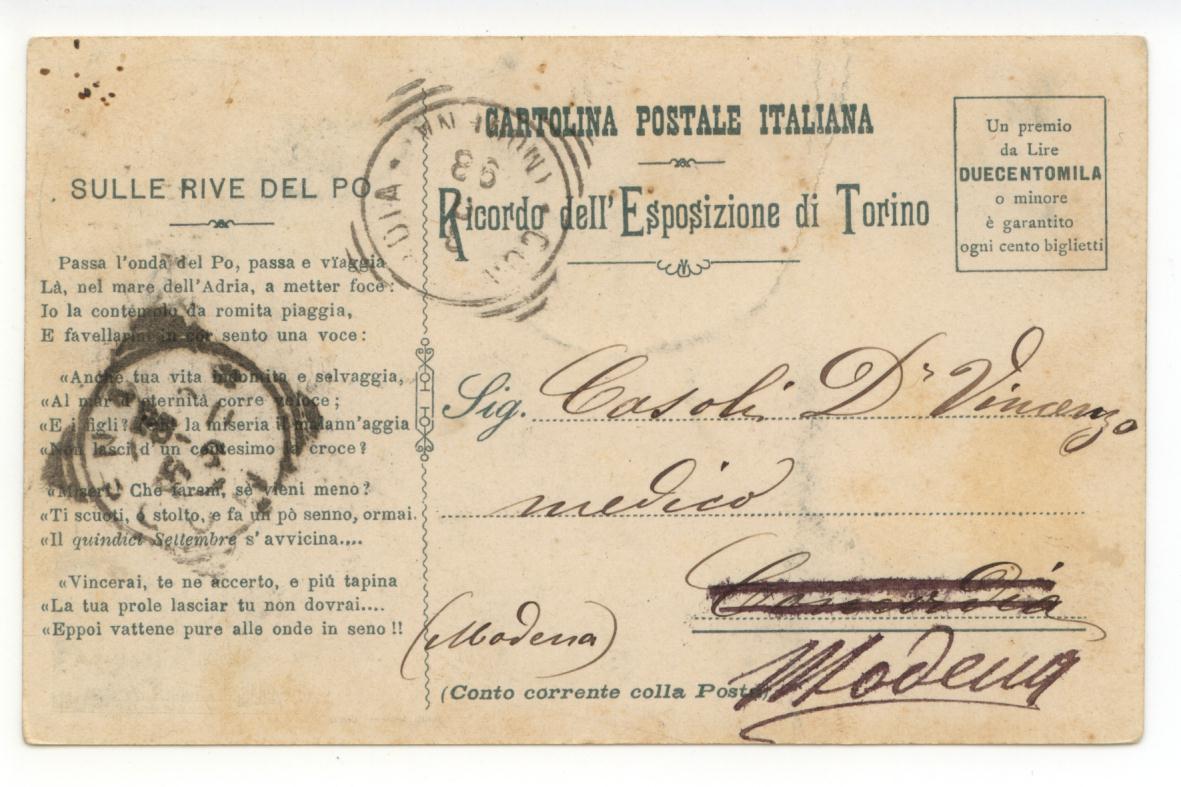 CARTOLINA POSTALE ITALIANA
Ricordo dell'Esposizione di Torino
Un premio
da Lire
DUECENTOMILA
o minore
è garantito
ogni cento biglietti
SULLE RIVE DEL PO
Passa l'onda del Po, passa e vïaggia
Là, nel mare dell'Adria, a metter foce:
Io la contemplo da romita piaggia,
E favellarmi in cor sento una voce:
«Anche tua vita indomita e selvaggia,
«Al mar d'eternità corre veloce;
«E i figli? Chè la miseria il malann'aggia
«Non lasci d'un centesimo la croce?
«Miseri! Che faran, se vieni meno?
«Ti scuoti, o stolto, e fa un pò senno, ormai.
«Il quindici Settembre s'avvicina....
«Vincerai, te ne accerto, e piú tapina
«La tua prole lasciar tu non dovrai....
«Eppoi vattene pure alle onde in seno !!
Sig. Casoli Dr Vincenzo
medico
Concordia
(Modena)
Modena
(Conto corrente colla Posta)
CONCORDIA
(MODENA)
98